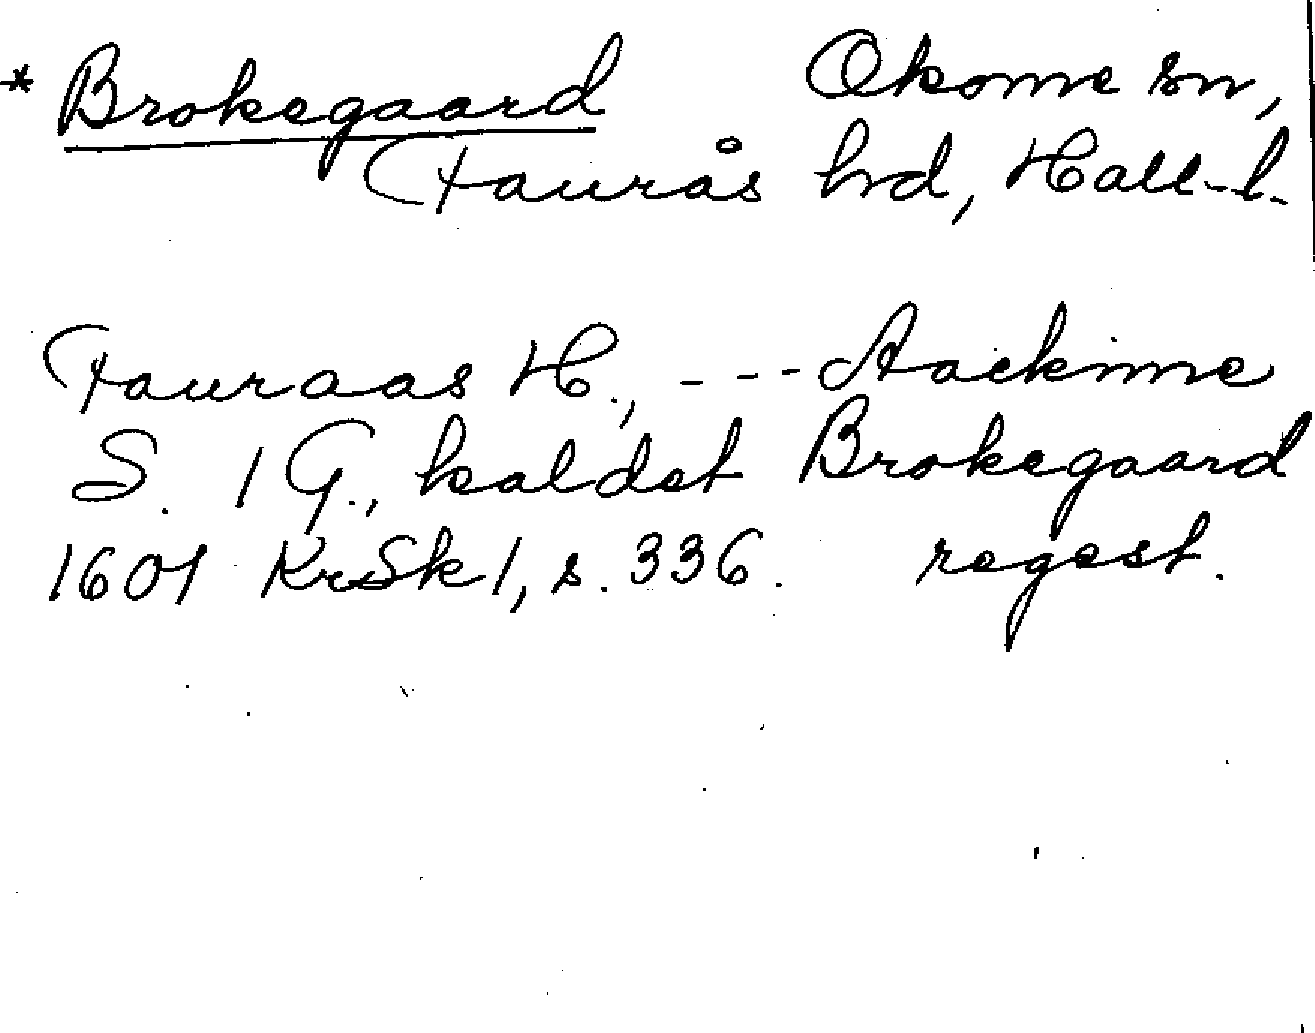 * Brokegaard Okome sn,
Faurås hd, Hall. l.
Fauraas H., --- Aackime
S. 1 G., kaldet Brokegaard
1601 KrSk 1, s. 336. regest.